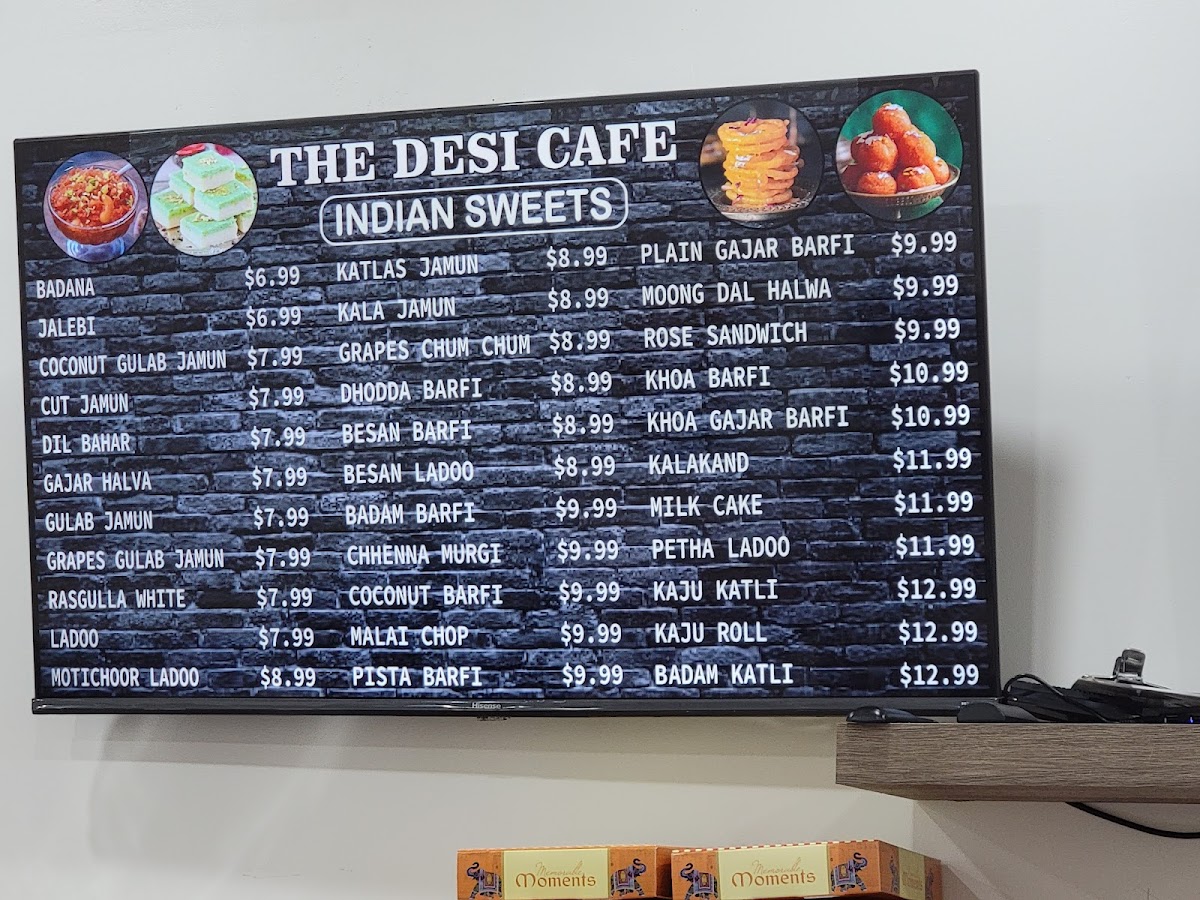 THE DESI CAFE
INDIAN SWEETS
BADANA $6.99
JALEBI $6.99
COCONUT GULAB JAMUN $7.99
CUT JAMUN $7.99
DIL BAHAR $7.99
GAJAR HALVA $7.99
GULAB JAMUN $7.99
GRAPES GULAB JAMUN $7.99
RASGULLA WHITE $7.99
LADOO $7.99
MOTICHOOR LADOO $8.99
KATLAS JAMUN $8.99
KALA JAMUN $8.99
GRAPES CHUM CHUM $8.99
DHODDA BARFI $8.99
BESAN BARFI $8.99
BESAN LADOO $8.99
BADAM BARFI $9.99
CHHENNA MURGI $9.99
COCONUT BARFI $9.99
MALAI CHOP $9.99
PISTA BARFI $9.99
PLAIN GAJAR BARFI $9.99
MOONG DAL HALWA $9.99
ROSE SANDWICH $9.99
KHOA BARFI $10.99
KHOA GAJAR BARFI $10.99
KALAKAND $11.99
MILK CAKE $11.99
PETHA LADOO $11.99
KAJU KATLI $12.99
KAJU ROLL $12.99
BADAM KATLI $12.99
Hisense
Moments
Moments